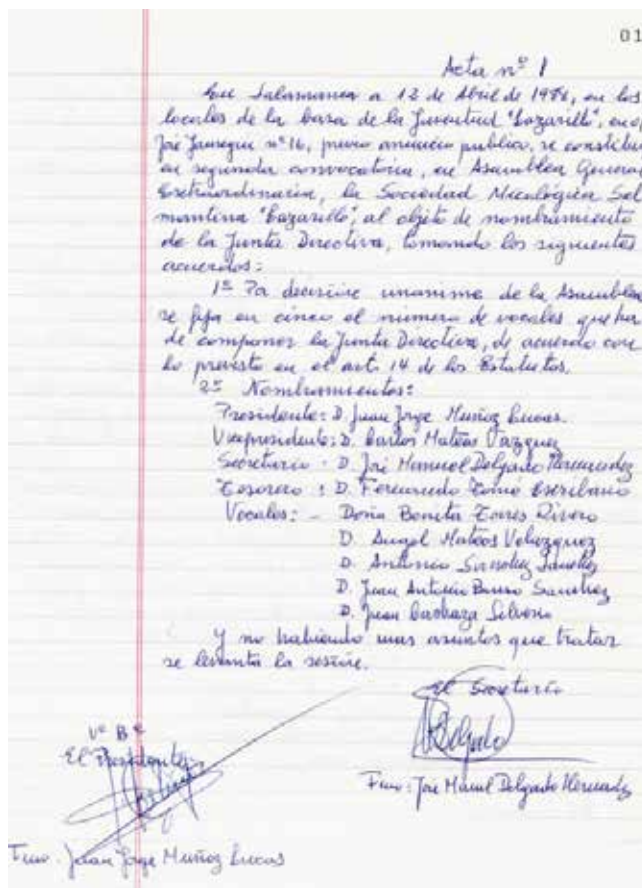 01
Acta nº 1
En Salamanca a 12 de Abril de 1986, en los
locales de la Casa de la Juventud "Lazarillo", en c/
José Jauregui nº 16, previo anuncio publico, se constitui
en segunda convocatoria, en Asamblea General
Extraordinaria, la Sociedad Micológica Sal
mantina "Lazarillo", al objeto de nombramiento
de la Junta Directiva, tomando los siguientes
acuerdos:
1º Por decisión unanime de la Asamblea
se fija en cinco el numero de vocales que ha
de componer la Junta Directiva, de acuerdo con
lo previsto en el art. 14 de los Estatutos.
2º Nombramientos:
Presidente: D. Juan Jorge Muñoz Lucas.
Vicepresidente: D. Carlos Mateos Vazquez
Secretario: D. José Manuel Delgado Hernandez
Tesorero: D. Fernando Tomé Escribano
Vocales: - Doña Benita Torres Rivero
D. Angel Mateos Velazquez
D. Antonio Sanchez
D. Juan Antonio Sanchez
D. Juan Silverio
Y no habiendo mas asuntos que tratar
se levanta la sesión.
El Secretario
Delgado
Fmo: José Manuel Delgado Hernandez
Vº Bº
El Presidente
Fmo. Juan Jorge Muñoz Lucas